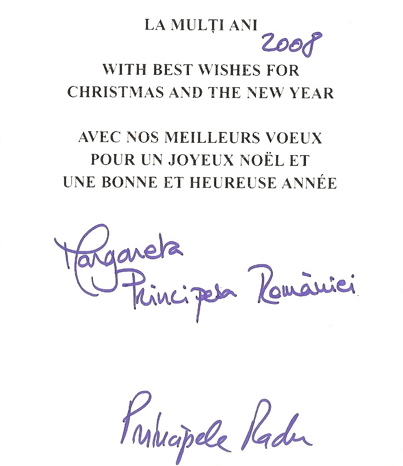 LA MULȚI ANI
2008
WITH BEST WISHES FOR
CHRISTMAS AND THE NEW YEAR
AVEC NOS MEILLEURS VOEUX
POUR UN JOYEUX NOËL ET
UNE BONNE ET HEUREUSE ANNÉE
Margareta
Principesa României
Principele Radu